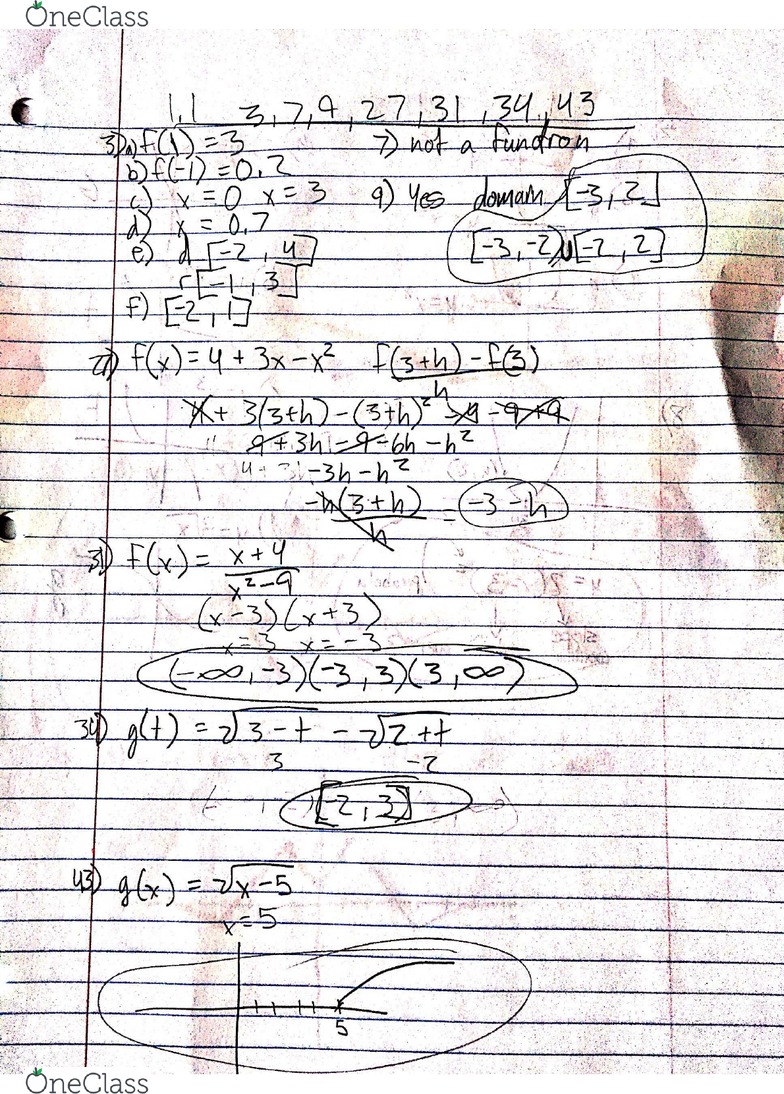 OneClass
1.1 3, 7, 9, 27, 31, 34, 43
3) a) f(1) = 3 7) not a function
b) f(-1) = 0.2
c) x = 0 x = 3 9) Yes domain [-3, 2]
d) x = 0.7 [-3, -2) U [-2, 2]
e) d [-2, 4]
r [-1, 3]
f) [-2, 1]
27) f(x) = 4 + 3x - x² f(3+h) - f(3)
h
4 + 3(3+h) - (3+h)² - 4 - 9 + 9
9 + 3h - 9 - 6h - h²
-3h - h²
-h(3+h) = -3 - h
h
31) f(x) = x+4
x²-9
(x-3)(x+3)
x=3 x=-3
(-∞, -3)(-3, 3)(3, ∞)
34) g(t) = √3-t - √2+t
3 -2
[-2, 3]
43) g(x) = √x-5
x=5
5
OneClass